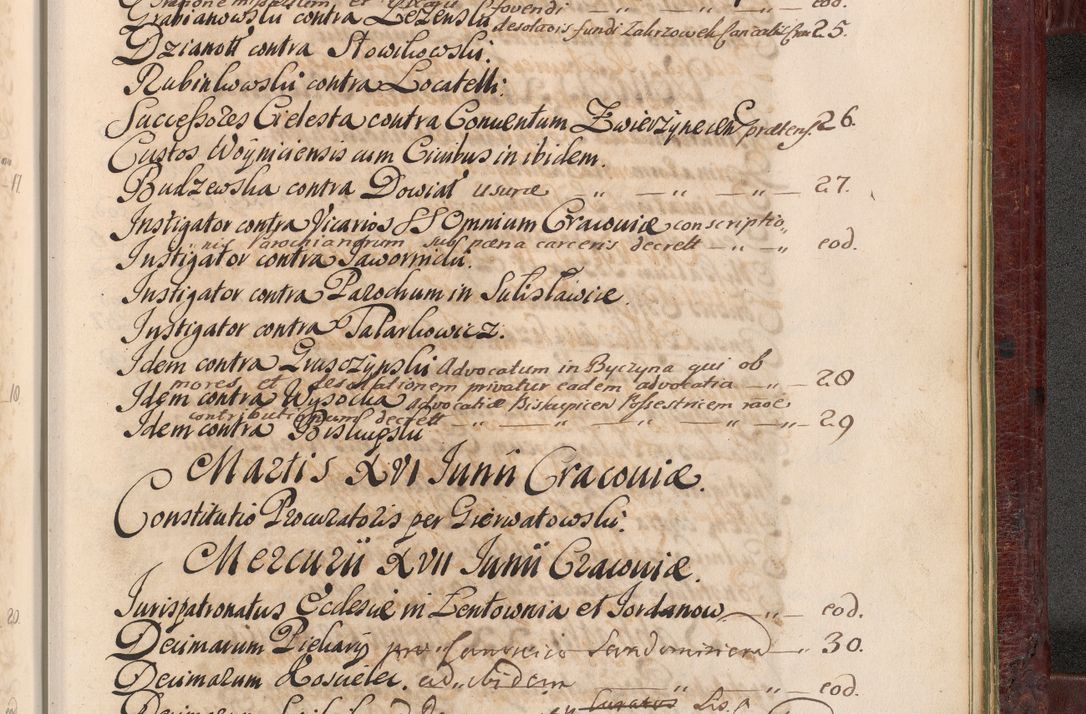 Grabianowski contra Leżenski fovendi — „ — „ — eod.
desolaõis fundi Zakrzowek Cancell: Crac 25.
Dzianott contra Słowikowski.
Rubinkowski contra Locatelli.
Successores Gelesta contra Conventum Zwierzynecen prætens. 26.
Custos Woyniciensis cum Civibus in ibidem.
Budzewska contra Dowiat usuræ — „ — „ — „ — 27.
Instigator contra Vicarios SS Omnium Cracoviæ conscriptio„
„nis Parochianorum sub pæna carceris decrett — „ — „ eod.
Instigator contra Jawornicki.
Instigator contra Parochum in Sulisławice.
Instigator contra Talarkowicz.
Idem contra Gruszczynski Advocatum in Byczyna qui ob
mores et desolationem privatur eadem advocatia — „ — 28
Idem contra Wysocka Advocatiæ Biskupicen Possestricem raõe
contributionum decrett — „ — „ — „ — „ — „ — 29
Idem contra Biskupski
Martis XVI Junii Cracoviæ.
Constitutio Procuratoris per Gierwatowski.
Mercurii XVII Junii Cracoviæ.
Jurispatronatus Ecclesiæ in Lentownia et Jordanow — „ — eod.
Decimarum Piekary pro Canonicio Sandomiriera — „ 30.
Decimarum Koscielec. ad„ibidem — „ — „ — eod.